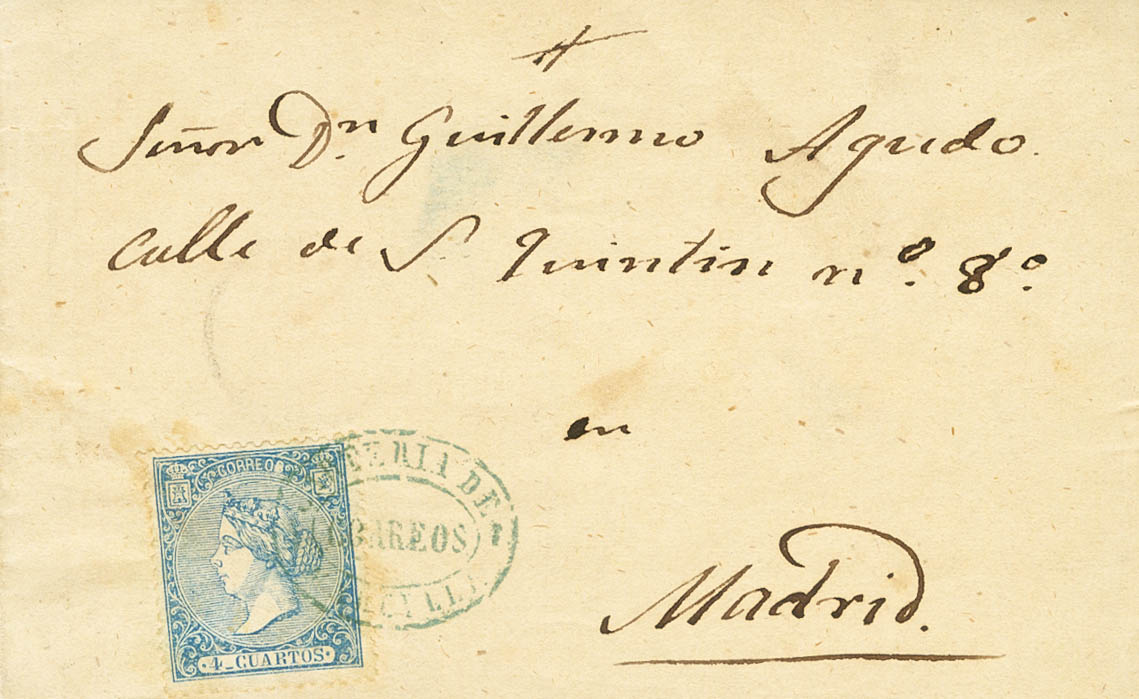 Señor Dn. Guillermo Agudo.
Calle de S. Quintin nº. 8º.
en
Madrid.
CORREOS
4-CUARTOS
DE
CORREOS